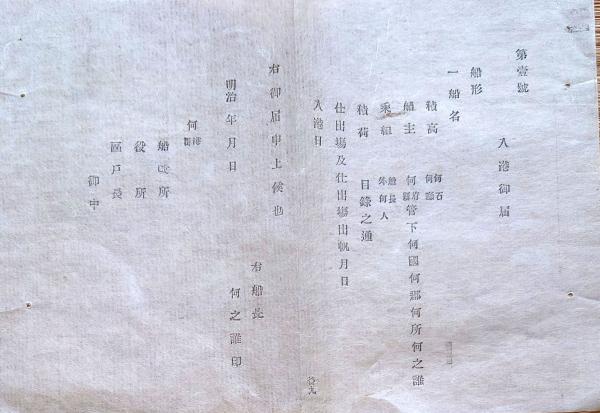 第壹號
入港御届
船形
一船名
積高 何石 何噸
船主 何府 何縣 管下何國何郡何所何之誰
乗組 船長 外何人
積荷 目錄之通
仕出場及仕出場出帆月日
入港日
右御届申上候也
明治 年 月 日
右船長
何之誰印
何 港
船改所
役所
區戸長
御中